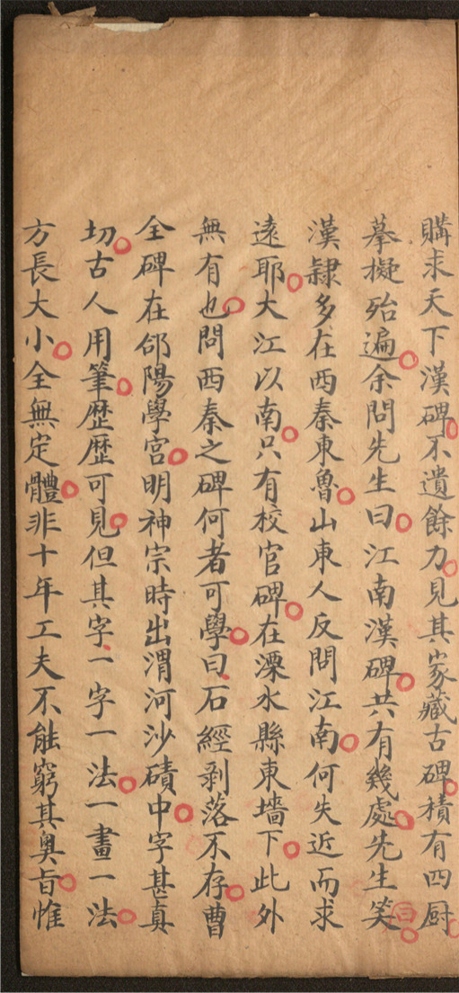 購求天下漢碑不遺餘力見其家藏古碑積有四厨
摹擬殆遍余問先生曰江南漢碑共有幾處先生笑曰
漢隸多在西秦東魯山東人反問江南何失近而求
遠耶大江以南只有校官碑在溧水縣東墻下此外
無有也問西秦之碑何者可學曰石經剥落不存曹
全碑在郃陽學宮明神宗時出渭河沙磧中字甚真
切古人用筆歷歷可見但其字一字一法一畫一法
方長大小全無定體非十年工夫不能窮其奥旨惟